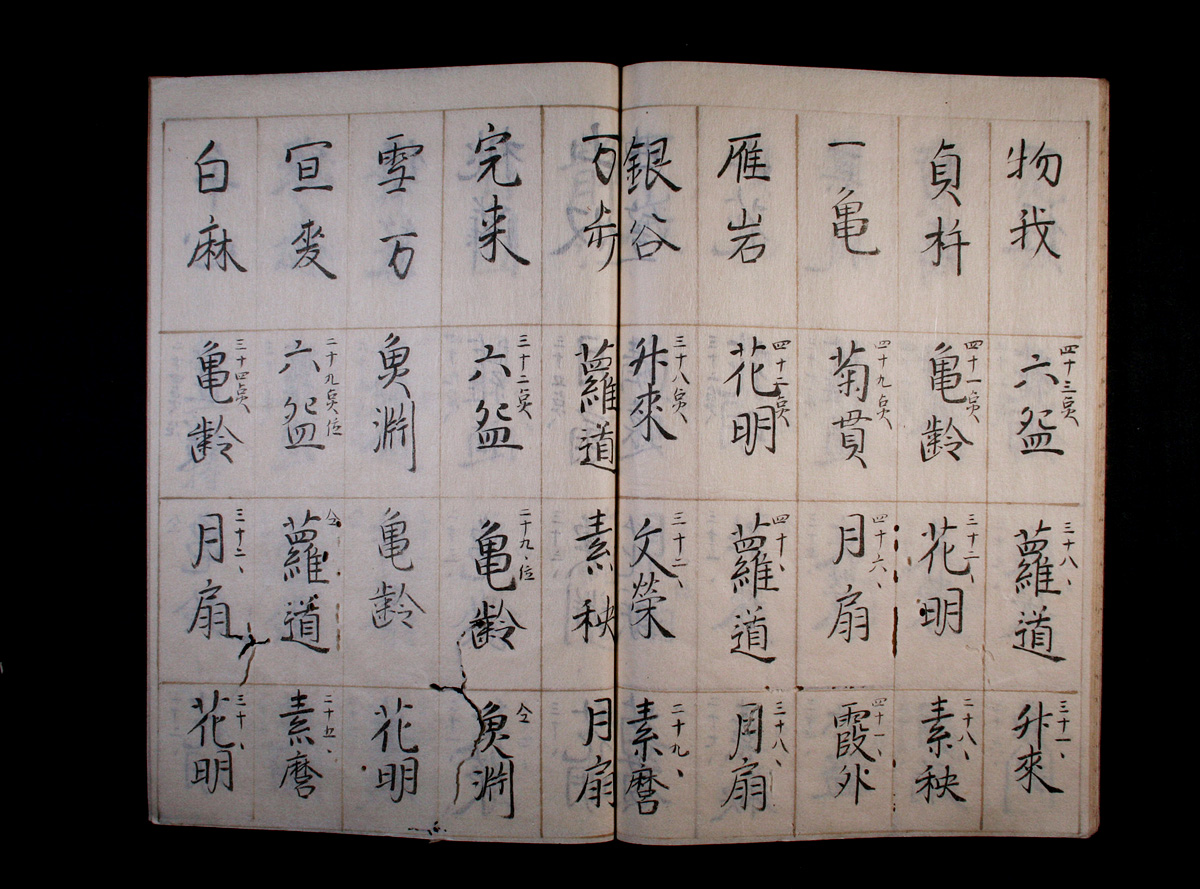 物我
四十三点、
六盌
三十八、
蘿道
三十一、
舛來
貞
四十一点、
亀齢
三十二、
花明
二十八、
素秧
一亀
四十九点、
菊貫
四十六、
月扇
四十一、
霞外
雁岩
四十二点、
花明
四十、
蘿道
三十八、
月扇
銀谷
三十八点、
舛來
三十二、
文栄
二十九、
素麿
万歩
蘿道
素秧
月扇
完来
三十二点
六盌
二十九、位
亀齢
仝
魚淵
雪万
魚淵
亀齢
花明
宣麦
二十九点、位
六盌
仝
蘿道
二十五、
素麿
白麻
三十四点、
亀齢
三十二、
月扇
三十、
花明